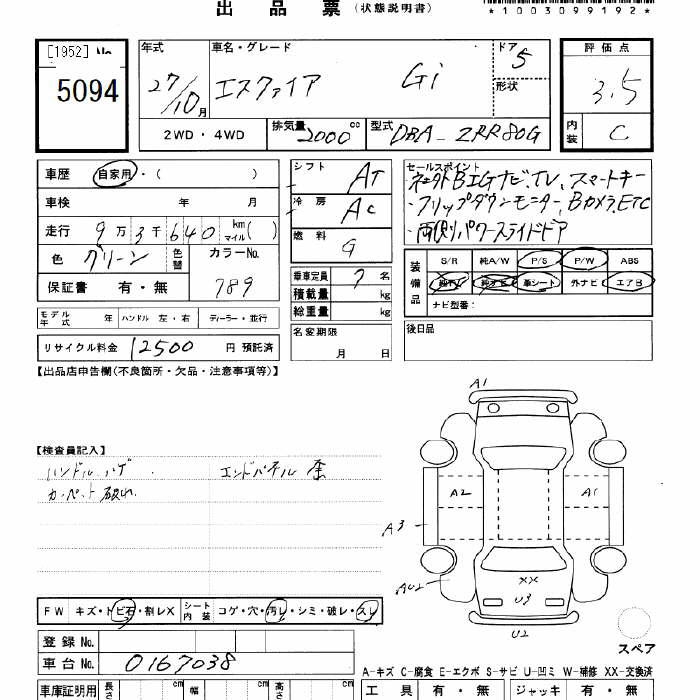 出品票(状態説明書)
*1003099192*
[1952] No
5094
年式 27/10月
車名・グレード エスクァイア Gi
ドア 5
形状
評価点 3.5
内装 C
2WD・4WD
排気量 2000 cc
型式 DBA-ZRR80G
車歴 自家用・( )
車検 年 月
走行 9万3千640 km マイル( )
色 グリーン 色替
カラーNo. 789
保証書 有・無
シフト AT
冷房 AC
燃料 G
乗車定員 7名
積載量 kg
総重量 kg
名変期限
月 日
セールスポイント
・ネクストBIGナビ、TV、スマートキー
・フリップダウンモニター、Bカメラ、ETC
・両側パワースライドドア
装備品 S/R 純A/W P/S P/W ABS
純TV 純ナビ 革シート 外ナビ エアB
ナビ型番:
モデル年式 年 ハンドル 左・右 ディーラー・並行
リサイクル料金 12500 円 預託済
後日品
【出品店申告欄(不良箇所・欠品・注意事項等)】
【検査員記入】
ハンドル ハゲ エンドパネル 歪
カーペット 破れ
A1
A2 A1
A3
AU2
XX
U3
U2
スペア
FW キズ・トビ石・割レX シート内装 コゲ・穴・汚レ・シミ・破レ・スレ
登録No.
車台No. 0167038
A-キズ C-腐食 E-エクボ S-サビ U-凹ミ W-補修 XX-交換済
車庫証明用 長さ cm 幅 cm 高さ cm
工具 有・無 ジャッキ 有・無